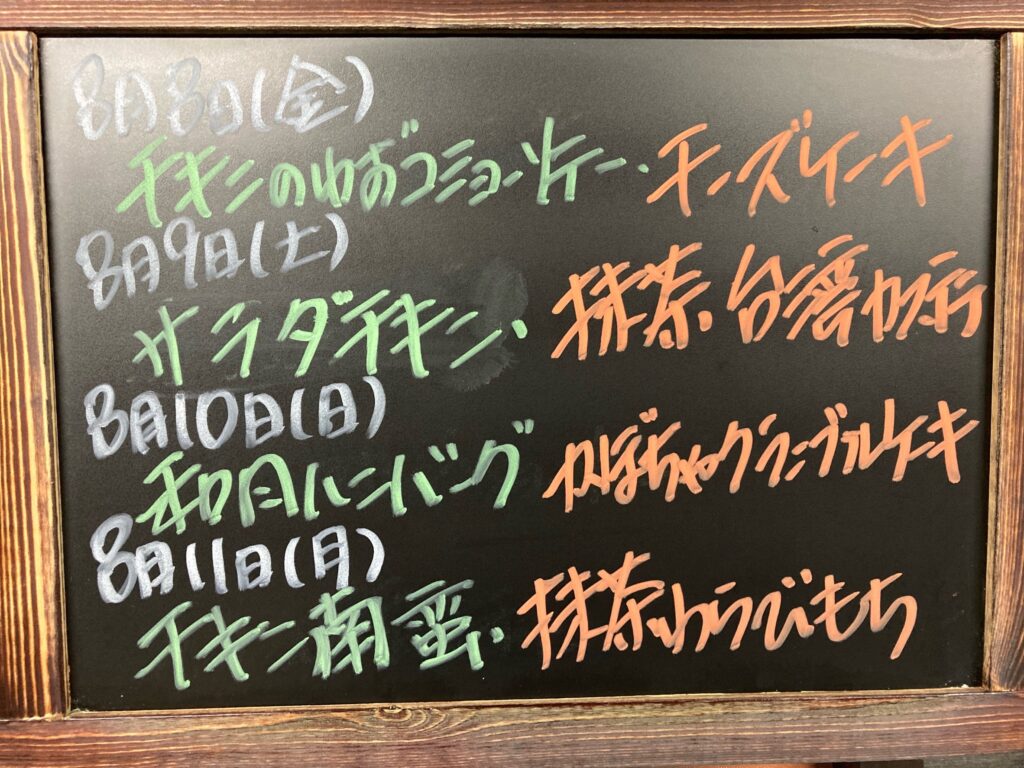 8月8日(金)
チキンのゆずコショーソテー・チーズケーキ
8月9日(土)
サラダチキン・抹茶台湾カステラ
8月10日(日)
和風ハンバーグ かぼちゃクランブルケーキ
8月11日(月)
チキン南蛮・抹茶わらびもち